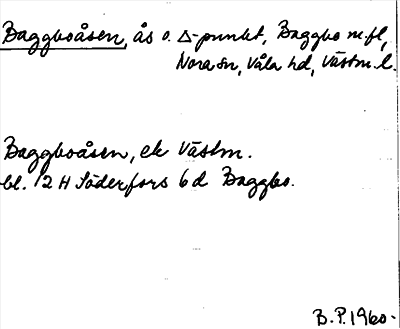 Baggboåsen, ås o. Δ-punkt, Baggbo m.fl,
Nora sn, Våla hd, Västm. l.
Baggboåsen, ek Västm.
bl. 12 H Söderfors 6 d Baggbo.
B.P. 1960-